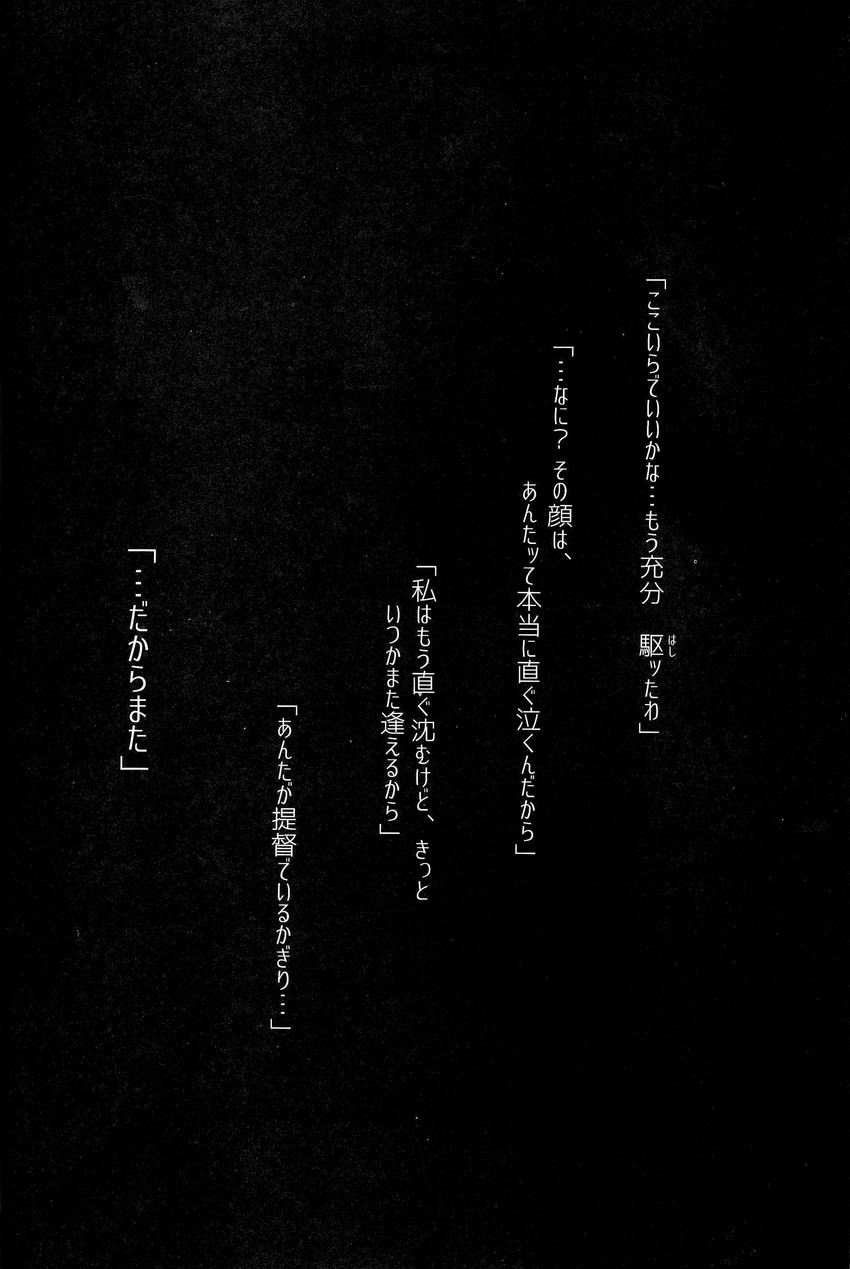 「ここいらでいいかな…もう充分　駆ッたわ」
はし
「…なに？ その顔は、
あんたッて本当に直ぐ泣くんだから」
「私はもう直ぐ沈むけど、きっと
いつかまた逢えるから」
「あんたが提督でいるかぎり…」
「…だからまた」